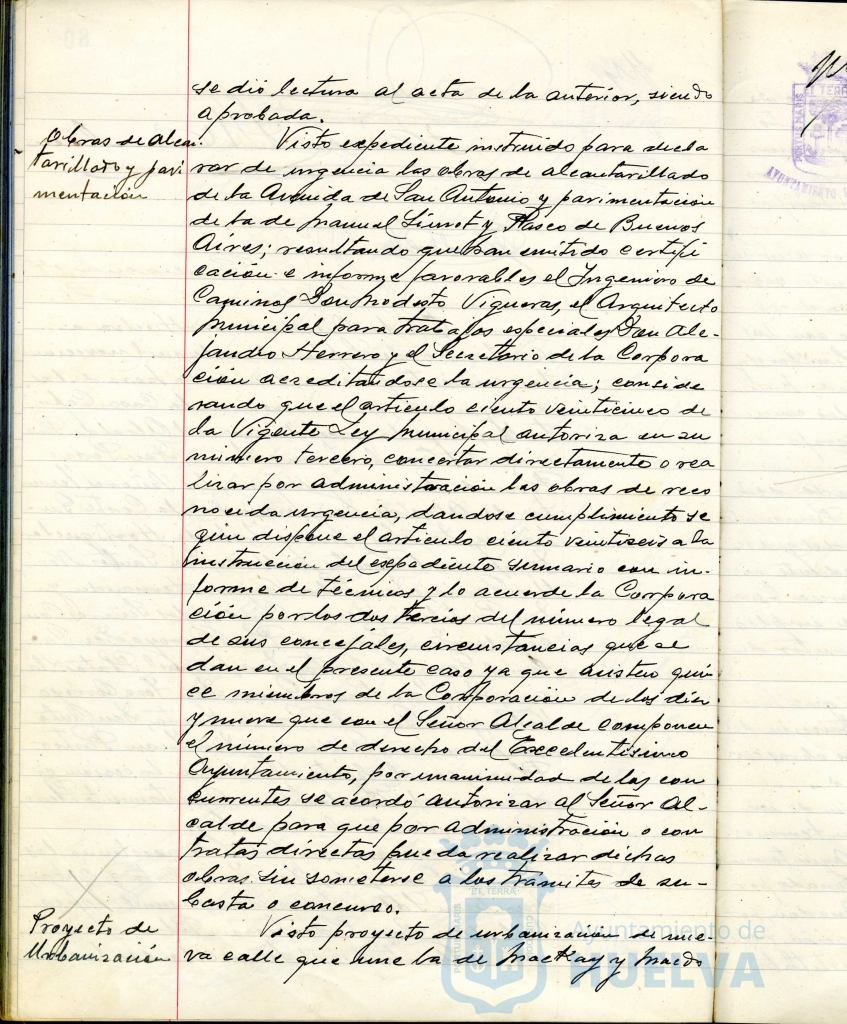 se dió lectura al acta de la anterior, siendo
aprobada.
Obras de alcan-
tarillado y pavi
mentación
Visto expediente instruido para decla
rar de urgencia las obras de alcantarillado
de la Avenida de San Antonio y pavimentación
de la de Manuel Siurot y Paseo de Buenos
Aires; resultando que han emitido certifi
cación e informe favorables el Ingeniero de
Caminos Don Modesto Vigueras, el Arquitecto
Municipal para trabajos especiales Don Ale-
jandro Herrero y el Secretario de la Corpora
ción acreditandose la urgencia; conside
rando que el articulo ciento veinticinco de
la Vigente Ley Municipal autoriza en su
número tercero, concertar directamente o rea
lizar por administración las obras de reco
nocida urgencia, dandose cumplimiento se
gún dispone el articulo ciento veintiseis a la
instrucción del expediente sumario con in-
forme de técnicos y lo acuerde la Corpora
ción por los dos tercios del número legal
de sus concejales, circunstancias que se
dan en el presente caso ya que asisten quin
ce miembros de la Corporación de los diez
y nueve que con el Señor Alcalde componen
el número de derecho del Excelentisimo
Ayuntamiento, por unanimidad de los con
currentes se acordó autorizar al Señor Al-
calde para que por administración o con
tratas directas pueda realizar dichas
obras sin someterse a los trámites de su-
basta o concurso.
Proyecto de
Urbanización
Visto proyecto de urbanización de nue-
va calle que une la de Mackay y Macdo
Ayuntamiento de
HUELVA